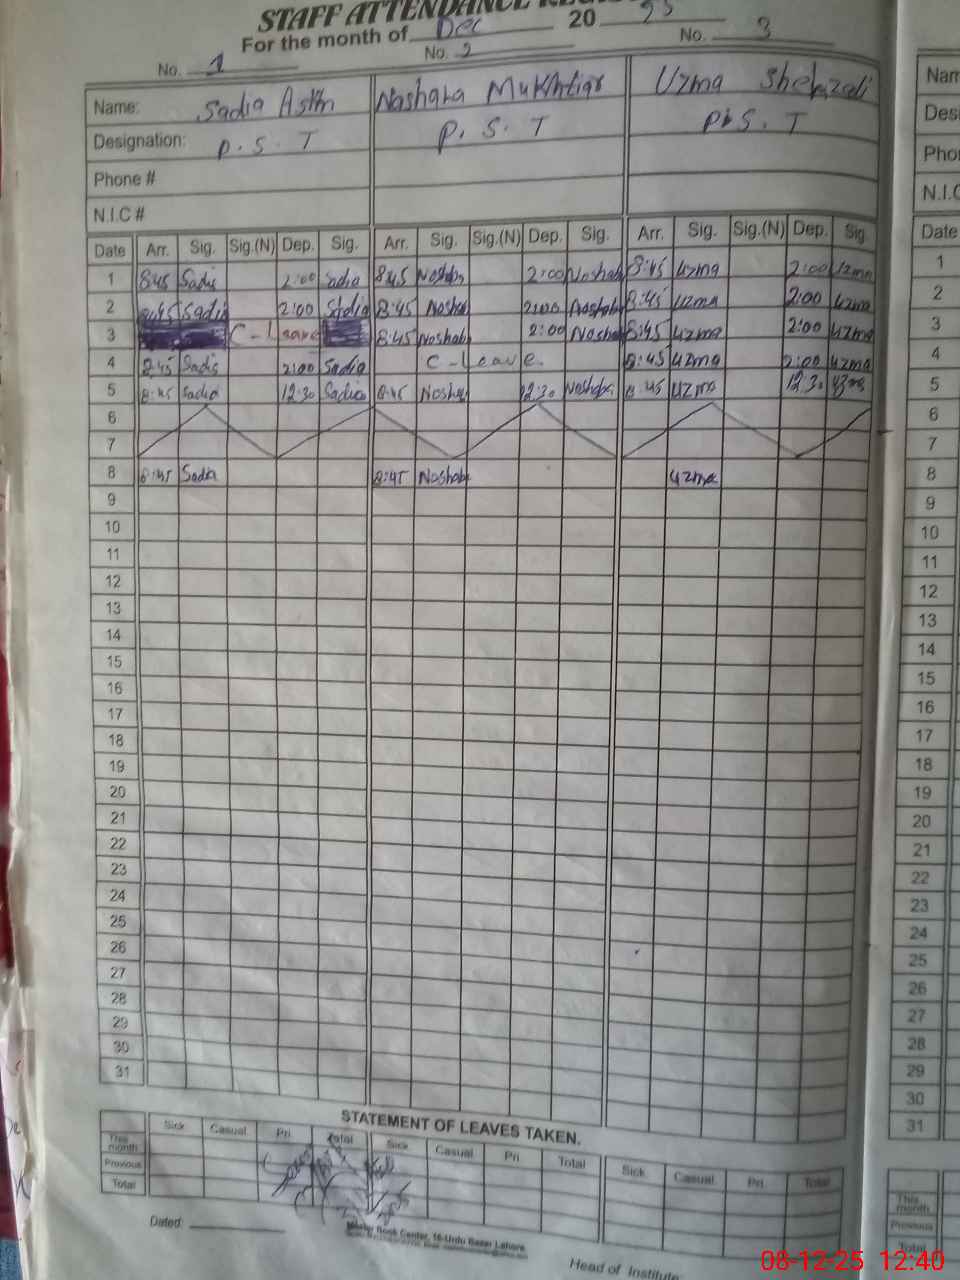 STAFF ATTENDANCE
For the month of Dec 20 25
No. 1 No. 2 No. 3
Name: Sadia Noshaba Mukhtiar Uzma Shehzadi
Designation: P.S.T P.S.T P.S.T
Phone #
N.I.C #
Date Arr. Sig. Sig.(N) Dep. Sig. Arr. Sig. Sig.(N) Dep. Sig. Arr. Sig. Sig.(N) Dep. Sig.
1 8:45 Sadia 2:00 Sadia 8:45 Noshaba 2:00 Noshaba 8:45 Uzma 2:00 Uzma
2 8:45 Sadia 2:00 Sadia 8:45 Noshaba 2:00 Noshaba 8:45 Uzma 2:00 Uzma
3 C-Leave 8:45 Noshaba 2:00 Noshaba 8:45 Uzma 2:00 Uzma
4 8:45 Sadia 2:00 Sadia C-Leave 8:45 Uzma 2:00 Uzma
5 8:45 Sadia 12:30 Sadia 8:45 Noshaba 12:30 Noshaba 8:45 Uzma 12:30 Uzma
6
7
8 8:45 Sadia 8:45 Noshaba Uzma
9
10
11
12
13
14
15
16
17
18
19
20
21
22
23
24
25
26
27
28
29
30
31
STATEMENT OF LEAVES TAKEN.
Sick Casual Pri Total Sick Casual Pri Total Sick Casual Pri. Total
This month
Previous
Total
Dated:
Book Center, 16-Urdu Bazar Lahore.
Head of Institute
Date
1
2
3
4
5
6
7
8
9
10
11
12
13
14
15
16
17
18
19
20
21
22
23
24
25
26
27
28
29
30
31
This month
Previous
Total
08-12-25 12:40